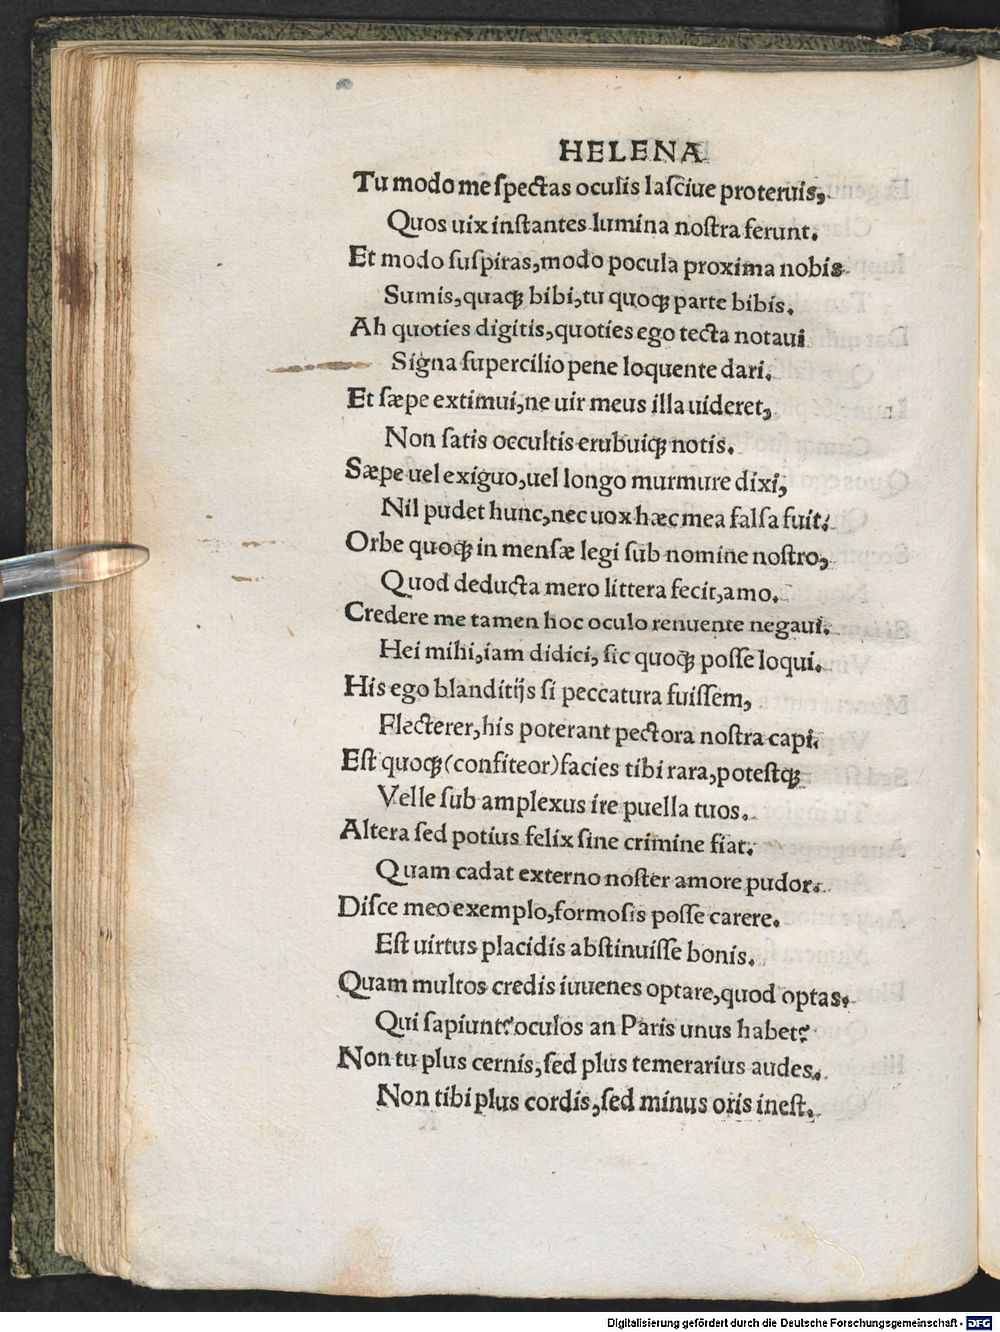 HELENA
Tu modo me ſpectas oculis laſciue proteruis,
Quos uix inſtantes lumina noſtra ferunt.
Et modo ſuſpiras, modo pocula proxima nobis
Sumis, quaqꝫ bibi, tu quoqꝫ parte bibis.
Ah quoties digitis, quoties ego tecta notaui
Signa ſupercilio pene loquente dari.
Et ſæpe extimui, ne uir meus illa uideret,
Non ſatis occultis erubuiqꝫ notis.
Sæpe uel exiguo, uel longo murmure dixi,
Nil pudet hunc, nec uox hæc mea falſa fuit.
Orbe quoqꝫ in menſæ legi ſub nomine noſtro,
Quod deducta mero littera fecit, amo.
Credere me tamen hoc oculo renuente negaui.
Hei mihi, iam didici, ſic quoqꝫ poſſe loqui.
His ego blanditijs ſi peccatura fuiſſem,
Flecterer, his poterant pectora noſtra capi.
Eſt quoqꝫ (confiteor) facies tibi rara, poteſtqꝫ
Velle ſub amplexus ire puella tuos.
Altera ſed potius felix ſine crimine fiat.
Quam cadat externo noſter amore pudor.
Diſce meo exemplo, formoſis poſſe carere.
Eſt uirtus placidis abſtinuiſſe bonis.
Quam multos credis iuuenes optare, quod optas.
Qui ſapiunt? oculos an Paris unus habet?
Non tu plus cernis, ſed plus temerarius audes.
Non tibi plus cordis, ſed minus oris ineſt.
Digitalisierung gefördert durch die Deutsche Forschungsgemeinschaft - DFG